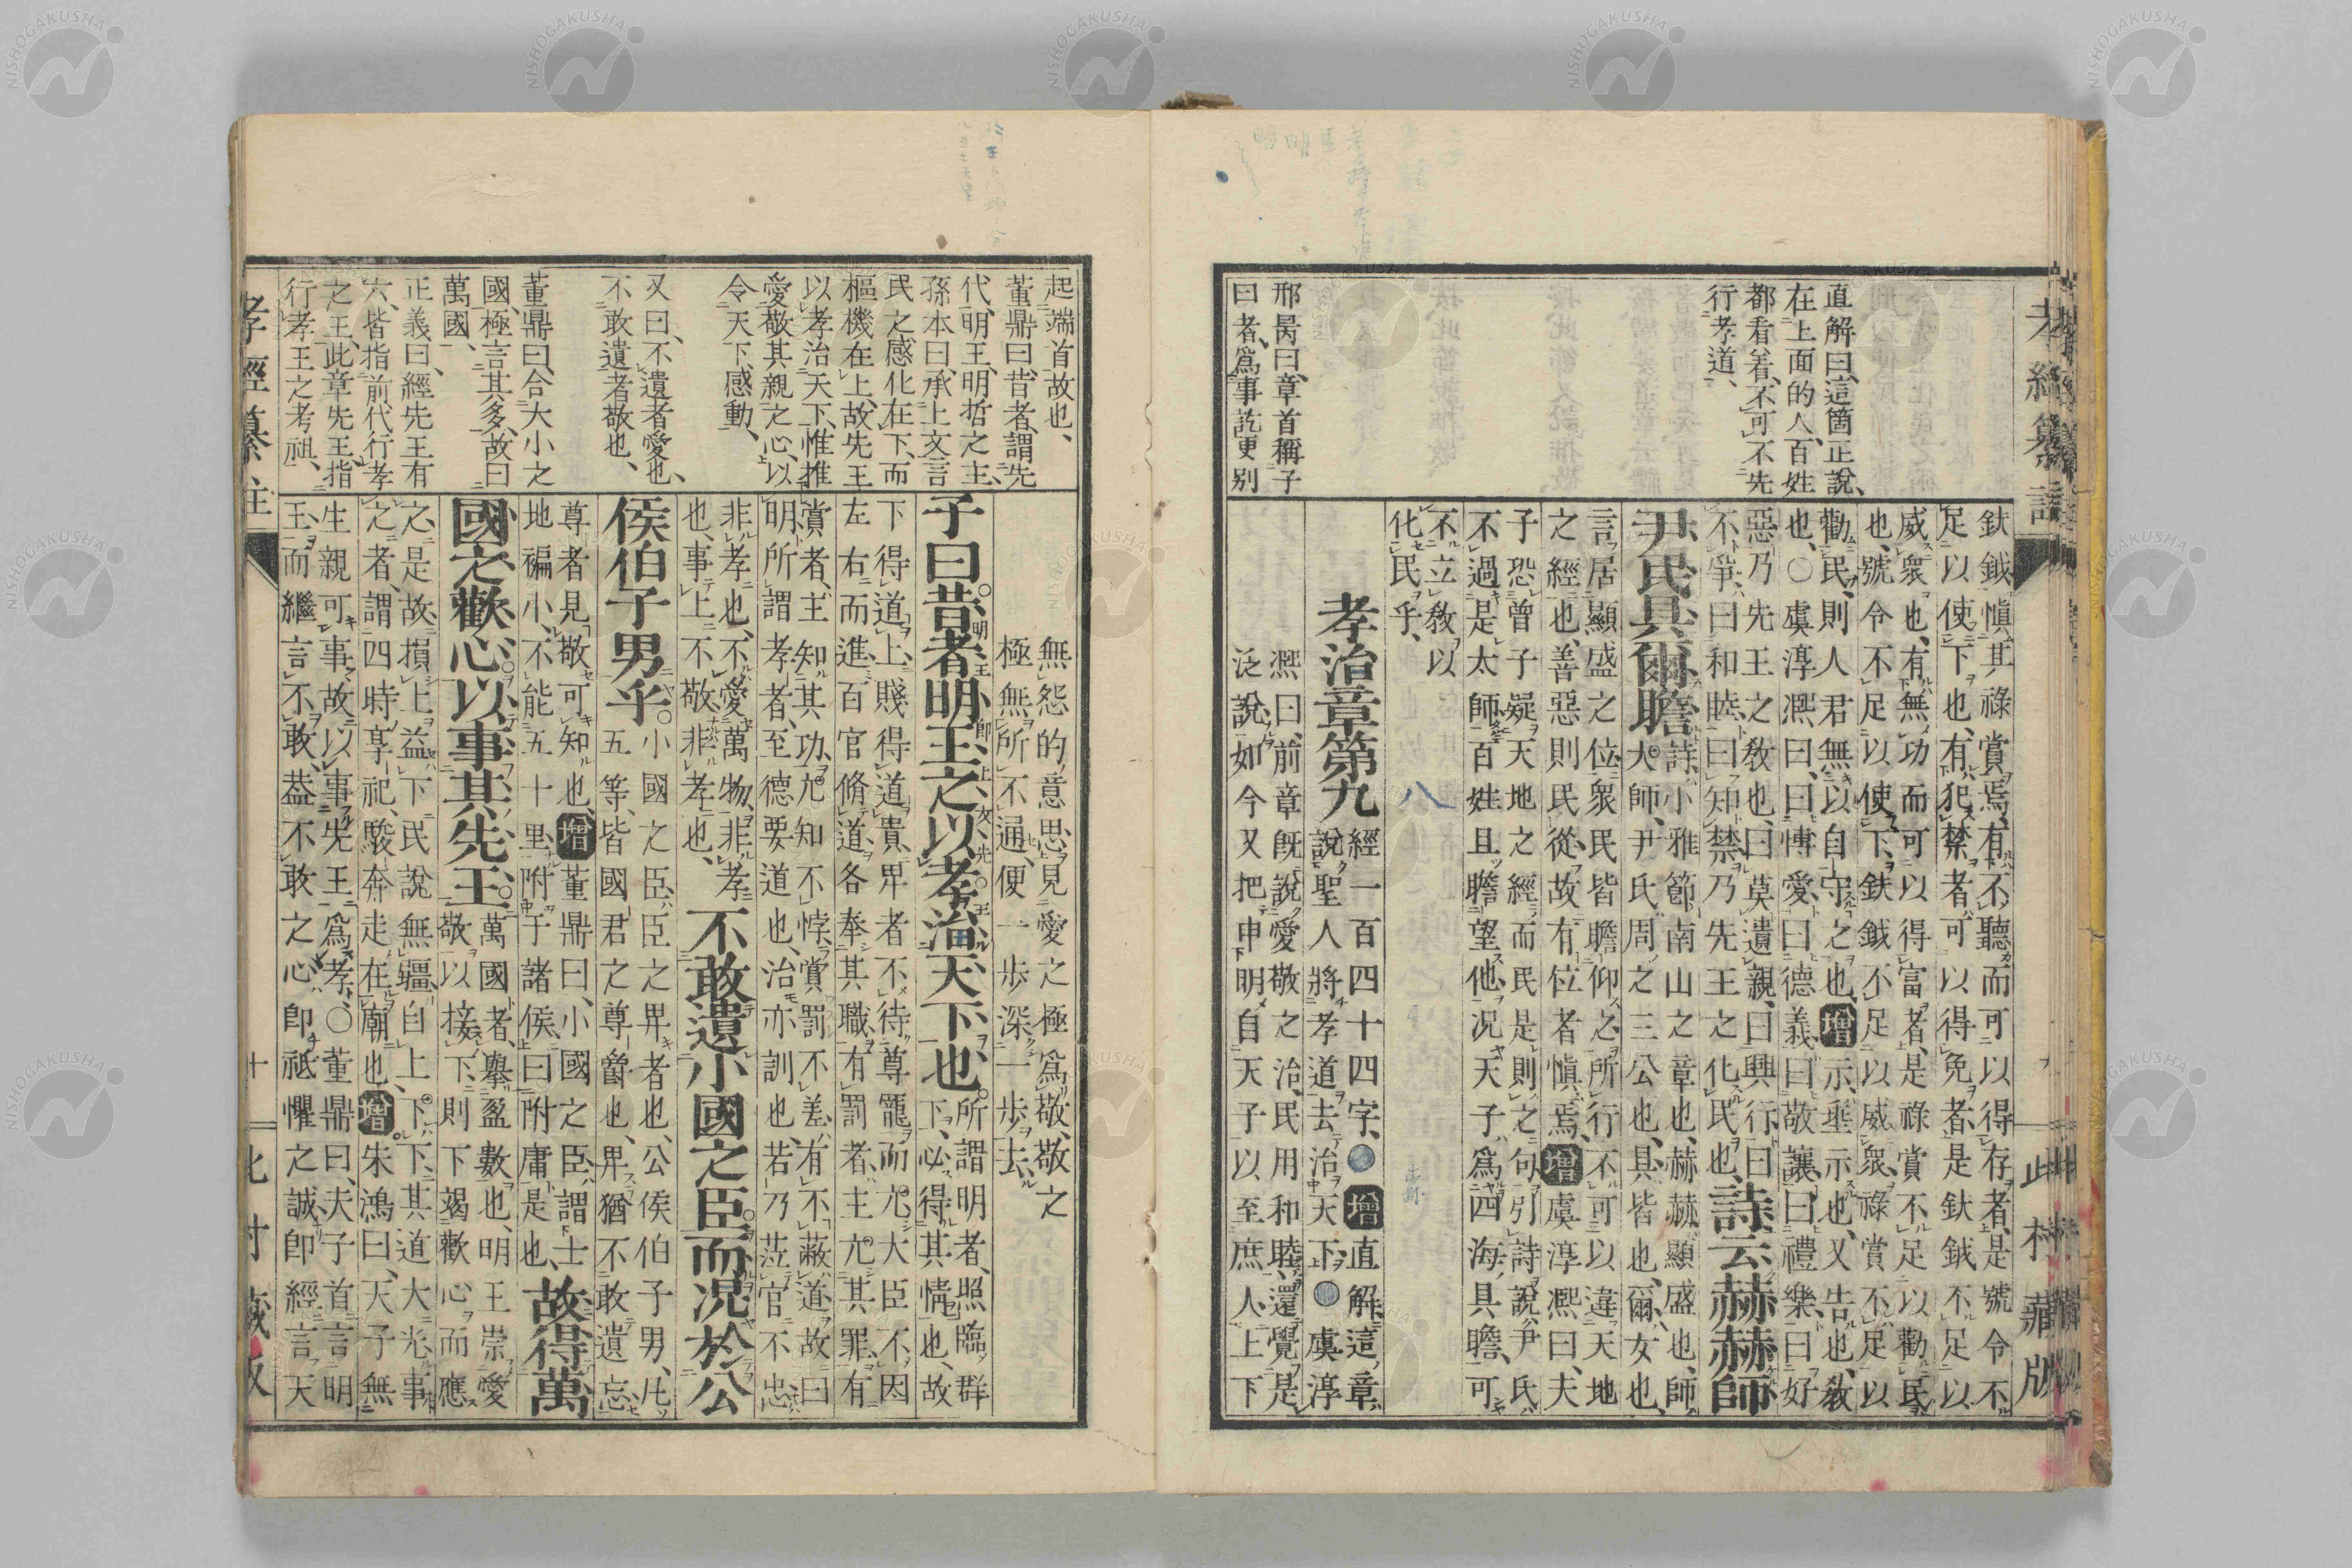 直解曰、這箇正說、
在上面的人、百姓
都看着、不可不先
行孝道、
邢昺曰、章首稱子
曰者、爲事訖更別
鈇鉞愼其祿賞焉、有不聽而可以得存者、是號令不
足以使下也、有犯禁者、可以得免者、是鈇鉞不足以
威衆也、有無功而可以得富者、是祿賞不足以勸民
也、號令不足以使下、鈇鉞不足以威衆、祿賞不足以
勸民、則人君無以自守之也、增示、垂示也、又告也、敎
也、○虞淳凞曰、曰博愛、曰德義、曰敬讓、曰禮樂、曰好
惡乃先王之敎也、曰莫遺親、曰興行、曰
不爭、曰和睦、曰知禁、乃先王之化民也、詩云赫赫師
尹民具爾瞻
詩、小雅節南山之章也、赫赫、顯盛也、師、
大師、尹氏、周之三公也、具、皆也、爾、女也、
言居顯盛之位、衆民皆瞻仰之、所行不可以違天地
之經也、善惡則民從、故有位者愼焉、增虞淳凞曰、夫
子恐曾子疑天地之經而民是則之句、引詩說、尹氏
不過是太師、百姓且瞻望他、况天子爲四海具瞻、可
不立敎以
化民乎、
八
孝治章第九
經一百四十四字、增直解這章、
說聖人將孝道去治天下、虞淳
凞曰、前章既說愛敬之治、民用和睦、還覺是
泛說、如今又把申明自天子以至庶人、上下
孝經纂註
此村藏版
起端首故也、
董鼎曰、昔者、謂先
代、明王、明哲之主、
孫本曰、承上文言
民之感化在下、而
樞機在上、故先王
以孝治天下、惟推
愛敬其親之心、以
令天下感動、
又曰、不遺者愛也、
不敢遺者敬也、
董鼎曰、合大小之
國、極言其多、故曰
萬國、
正義曰、經先王有
六、皆指前代行孝
之王、此章先王、指
行孝王之考祖、
無怨的意思、見愛之極爲敬、敬之
極無所不通、便一步深一步去、
子曰昔者明王之以孝治天下也、
所謂明者、照臨群
下、必得其情也、故
下得道上、賤得道貴、卑者不待尊寵而尤、大臣不因
左右而進、百官脩道、各奉其職、有罰者、主尤其罪、有
賞者、主知其功、尤知不悖、賞罰不差、有不蔽道、故曰
明、所謂孝者、至德要道也、治亦訓也、若乃莅官不忠
非孝也、不愛萬物、非孝
也、事上不敬、非孝也、
不敢遺小國之臣、而况於公
侯伯子男乎、
小國之臣、臣之卑者也、公侯伯子男、凡
五等、皆國君之尊爵也、卑猶不敢遺忘、
尊者見敬可知也、增董鼎曰、小國之臣、謂士
地褊小、不能五十里、附于諸侯、曰附庸是也、
故得萬
國之歡心、以事其先王、
萬國者、擧盈數也、明王崇愛
敬以接下、則下竭歡心而應
之、是故損上益下、民說無疆、自上下下、其道大光、事
之者、謂四時享祀、駿奔走在廟也、增朱鴻曰、天子無
生親可事、故以事先王爲孝、○董鼎曰、夫子首言明
王、而繼言不敢、葢不敢之心、卽祗懼之誠、卽經言天
孝經纂註
十
此村藏版